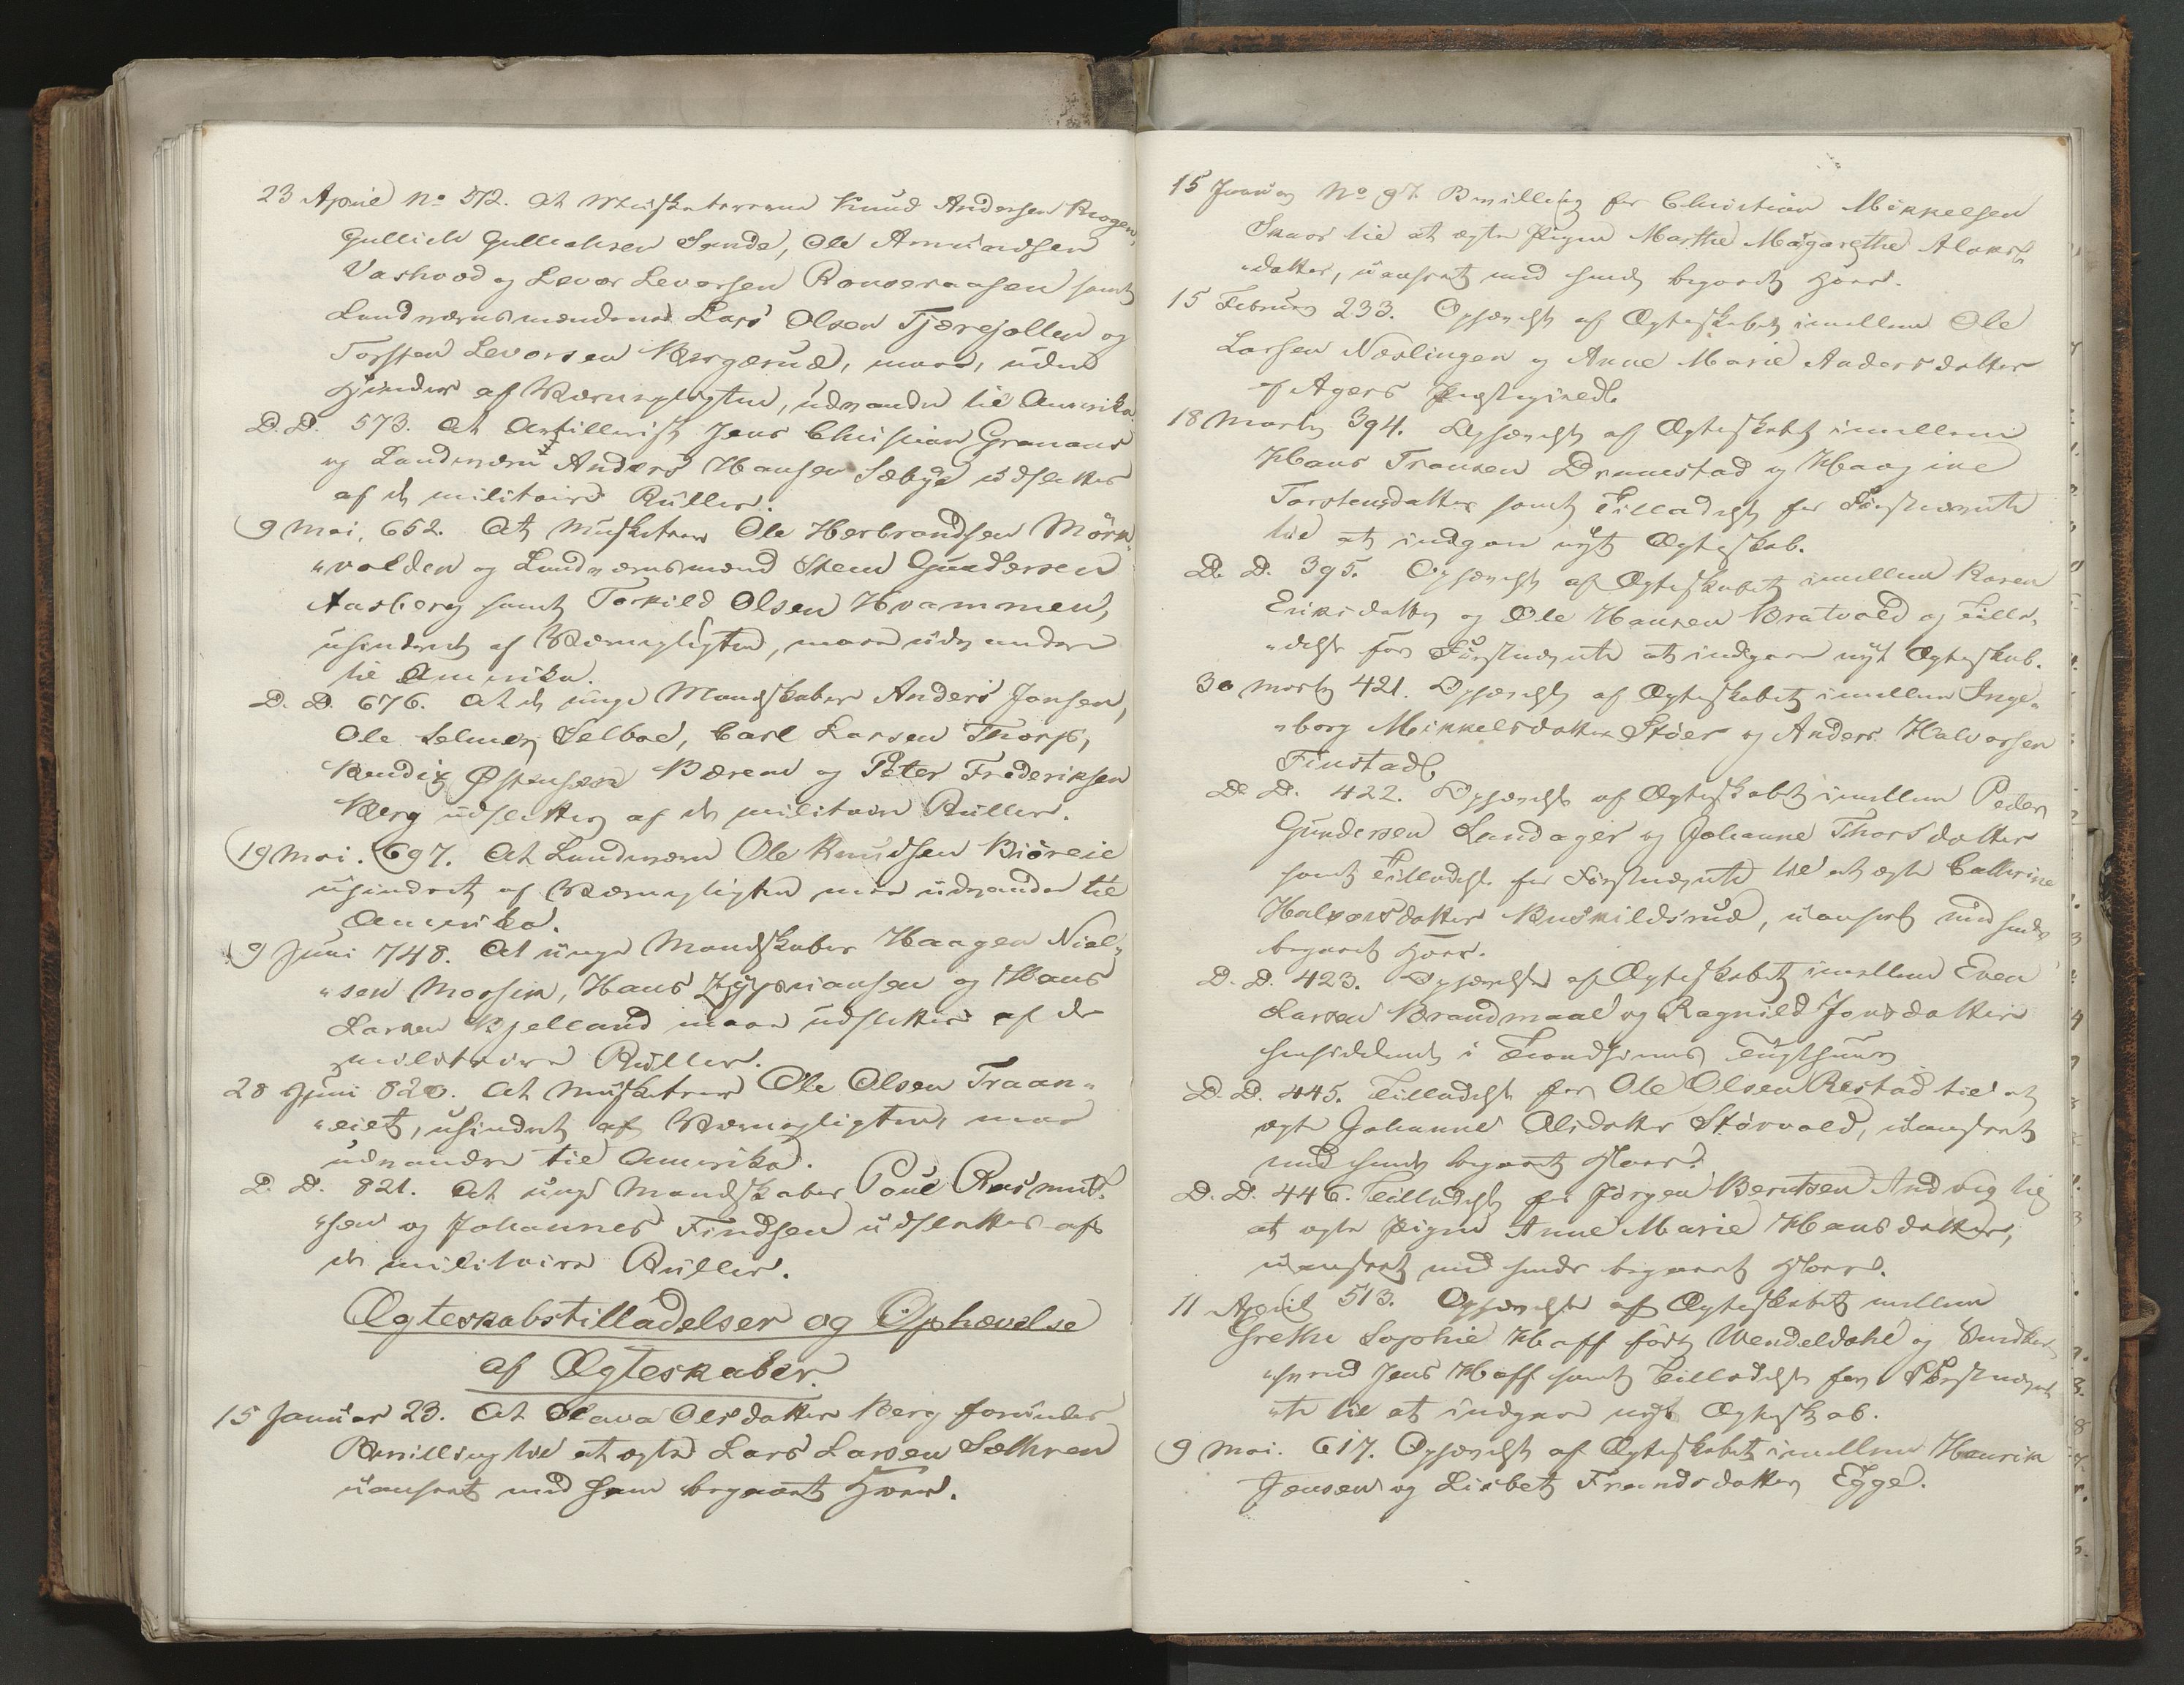 23 April No 572. At Musketererne Knud Andersen Krogen,
Gullick Gulliksen Sunde, Ole Amundsen
Vashovd og Levor Levorsen Rouseraasen samt
Landværnsmændene Lars Olsen Tjærejollen og
Torsten Levorsen Bergerud, maae, uden
Hinder af Værnepligten, udvandre til Amerika.
D. D. 573. At Artillerist Jens Christian Gramans
og Landværn Anders Hansen Sæbye udslettes
af de militaire Ruller.
9 Mai, 652. At Musketeer Ole Herbrandsen Mörk„
„volden og Landværnsmænd Steen Gundersen
Aasberg samt Torkild Olsen Hvammen,
uhindret af Værnepligten, maae udvandre
til Amerika.
D. D. 676. At de unge Mandskaber Anders Jonsen,
Ole Selmer Selboe, Carl Larsen Thorp,
Bendix Østensen Bærem og Peter Frederiksen
Berg udslettes af de militaire Ruller.
19 Mai. 697. At Landværn Ole Knudsen Biöreie
uhindret af Værnepligten maa udvandre til
Amerika.
9 Juni 748. At unge Mandskaber Haagen Niel„
„sen Morsim, Hans Zyprianssen og Hans
Larsen Kjelland maae udslettes af de
militaire Ruller.
28 Juni 820. At Musketeer Ole Olsen Traan„
„eiet, uhindret af Værnepligten, maa
udvandre til Amerika.
D. D. 821. At unge Mandskaber Poul Rasmus„
„sen og Johannes Findsen udslettes af
de militaire Ruller.
Ægteskabstilladelser og Ophævelse
af Ægteskaber.
15 Januar 23. At Olava Olsdatter Berg forundes
Bevilling til at ægte Lars Larsen Sæthren
uanseet med ham begaaet Hoer.
15 Januar No 97. Bevilling for Christian Mikkelsen
Skaar til at ægte Pigen Marthe Margrethe Alexs„
„datter, uanseet med hende begaaet Hoer.
15 Februar 233. Ophævelse af Ægteskabet imellem Ole
Larsen Næslingen og Anne Marie Andersdatter
af Agers Præstegjeld.
18 Marts 394. Ophævelse af Ægteskabet imellem
Hans Transen Dramstad og Haagine
Torstensdatter samt Tilladelse for Förstnævnte
til at indgaae nyt Ægteskab.
D. D. 395. Ophævelse af Ægteskabet imellem Karen
Eriksdatter og Ole Hansen Bratvold og Tilla„
„delse for Förstnævnte at indgaae nyt Ægteskab.
30 Marts 421. Ophævelse af Ægteskabet imellem Inge„
„borg Mikkelsdatter Stöer og Anders Halvorsen
Finstad.
D. D. 422. Ophævelse af Ægteskabet imellem Peder
Gundersen Landager og Johanne Thorsdatter
samt Tilladelse for Förstnævnte til at ægte Cathrine
Halvorsdatter Buskildsrud, uanseet med hende
begaaet Hoer.
D. D. 423. Ophævelse af Ægteskabet imellem Even
Larsen Brandmaal og Ragnild Jonsdatter
hensiddende i Trondhjems Tugthuus
D. D. 445. Tilladelse for Ole Olsen Restad til at
ægte Johanne Olsdatter Störvold, uanseet
med hende begaaet Hoer.
D. D. 446. Tilladelse for Jörgen Berntsen Andvig til
at ægte Pigen Anne Marie Hansdatter,
uanseet med hende begaaet Hoer.
11 April 513. Ophævelse af Ægteskabet mellem
Grethe Sophie Hoff födt Wendeldahl og Snedker„
„svend Jens Hoff samt Tilladelse for Förstnævn„
„te til at indgaae nyt Ægteskab.
9 Mai. 617. Ophævelse af Ægteskabet imellem Henrik
Jensen og Lisbet Frandsdatter Egge.